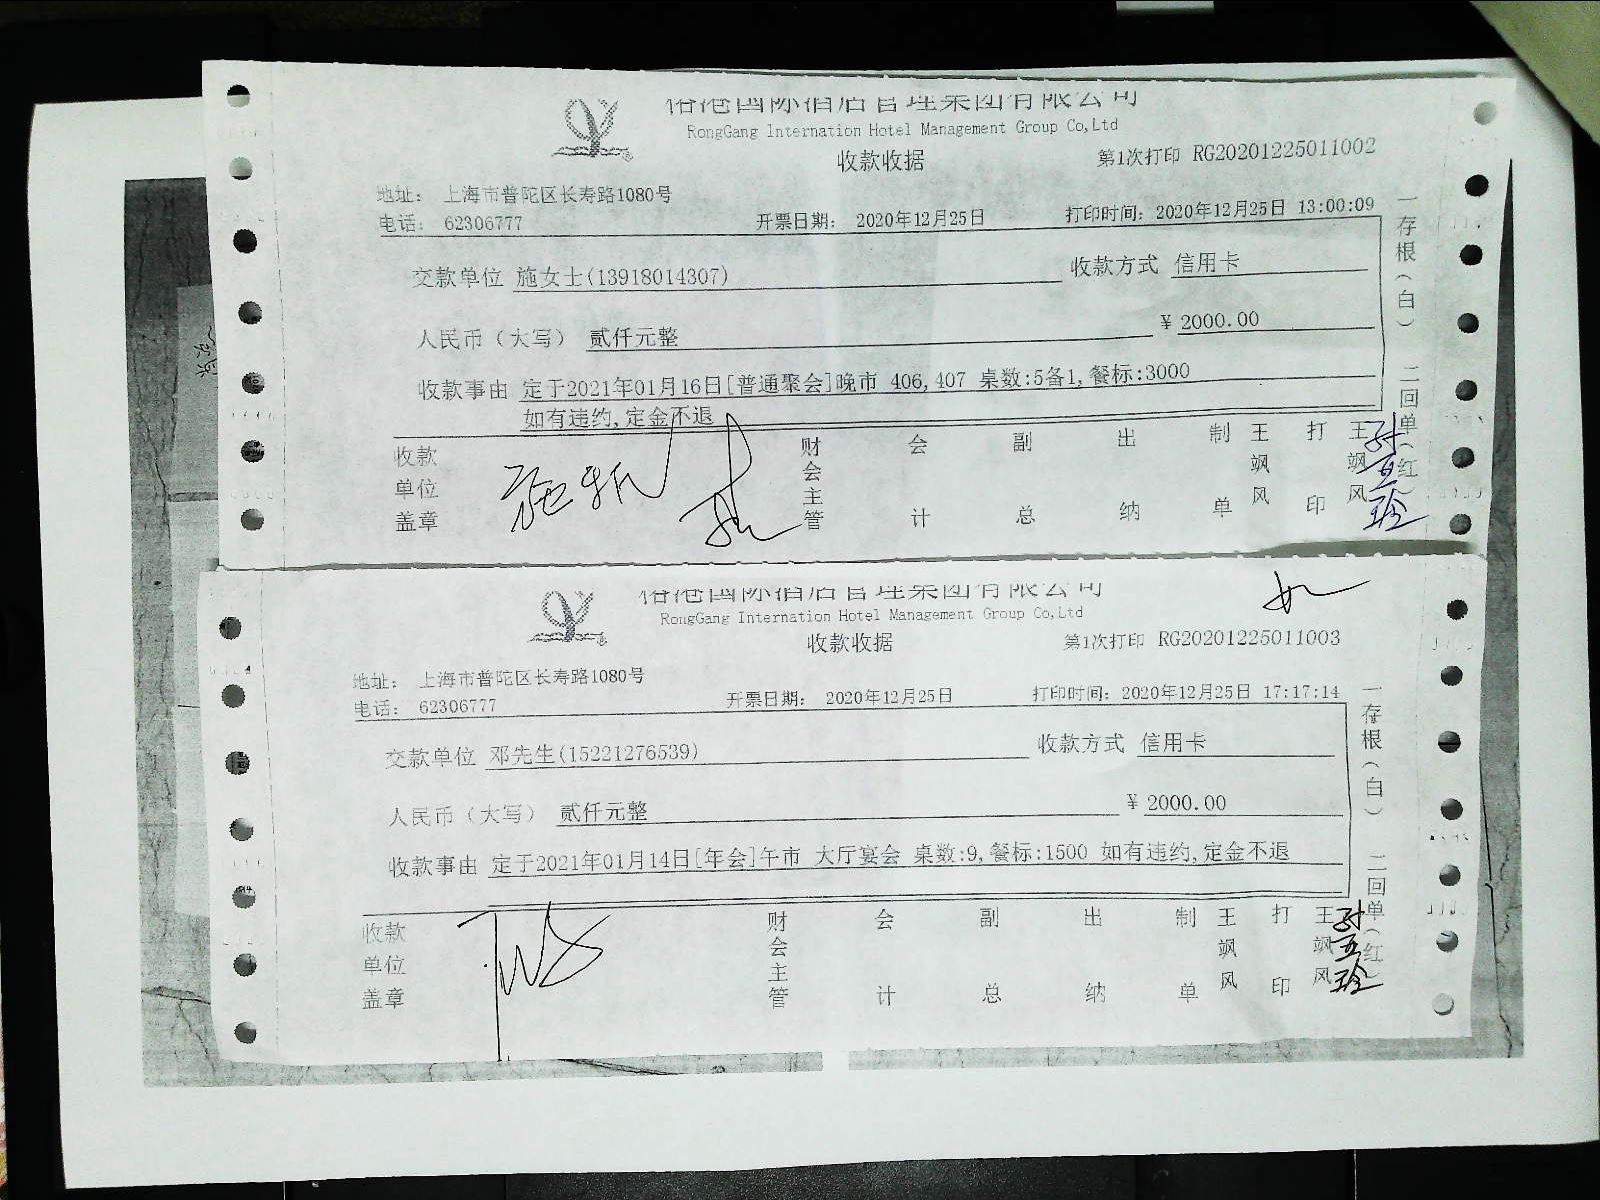 榕港国际酒店管理集团有限公司
RongGang Internation Hotel Management Group Co,Ltd
收款收据
第1次打印 RG20201225011002
地址： 上海市普陀区长寿路1080号
电话： 62306777 开票日期： 2020年12月25日 打印时间： 2020年12月25日 13:00:09
交款单位 施女士(13918014307) 收款方式 信用卡
人民币（大写） 贰仟元整 ¥ 2000.00
收款事由 定于2021年01月16日[普通聚会]晚市 406,407 桌数:5备1,餐标:3000
如有违约,定金不退
一存根（白） 二回单（红）
收款单位盖章 财会主管 会计 副总 出纳 制单 王飒风 打印 王飒风
榕港国际酒店管理集团有限公司
RongGang Internation Hotel Management Group Co,Ltd
收款收据
第1次打印 RG20201225011003
地址： 上海市普陀区长寿路1080号
电话： 62306777 开票日期： 2020年12月25日 打印时间： 2020年12月25日 17:17:14
交款单位 邓先生(15221276539) 收款方式 信用卡
人民币（大写） 贰仟元整 ¥ 2000.00
收款事由 定于2021年01月14日[年会]午市 大厅宴会 桌数:9,餐标:1500 如有违约,定金不退
一存根（白） 二回单（红）
收款单位盖章 财会主管 会计 副总 出纳 制单 王飒风 打印 王飒风